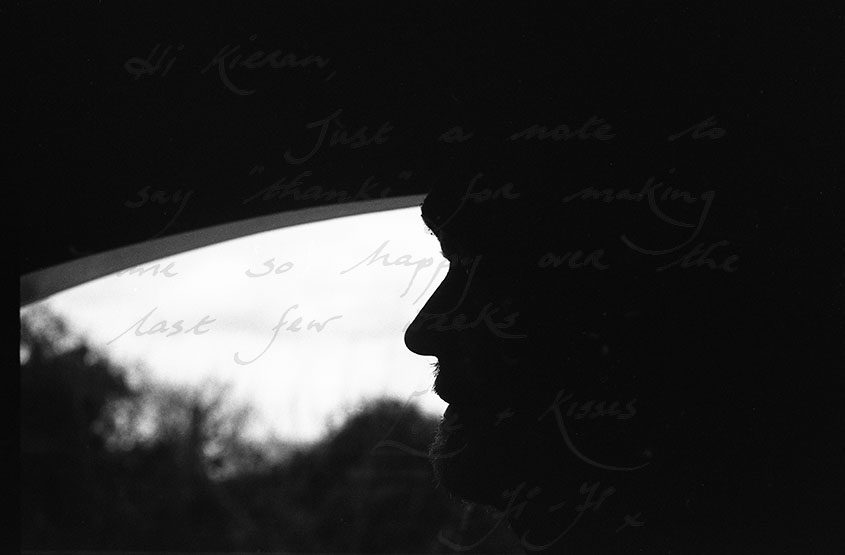 Hi Kieran,
Just a note to
say "thanks" for making
me so happy over the
last few weeks
Love + Kisses